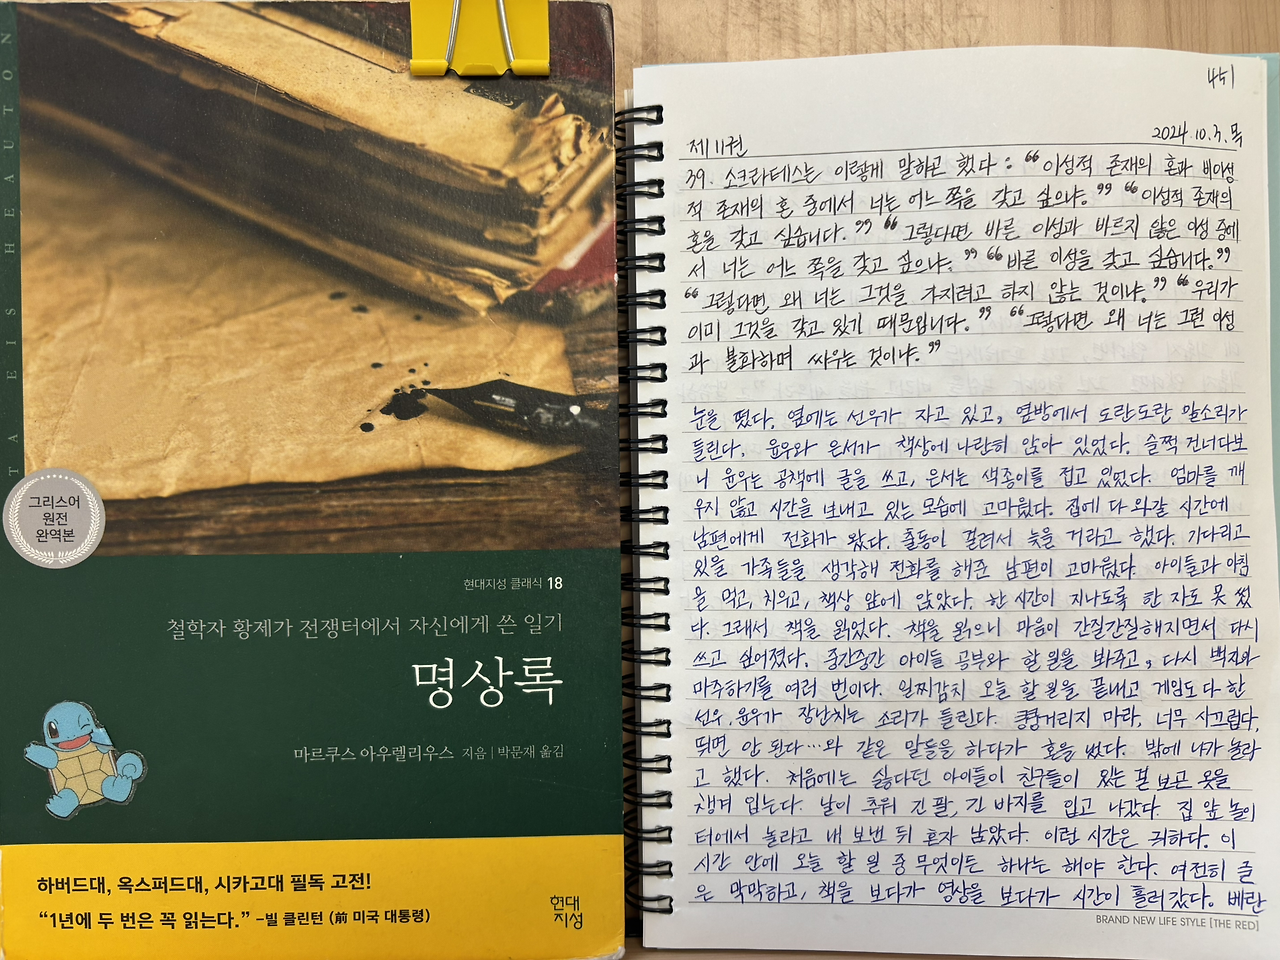 TA EIS HEAUTON
그리스어
원전
완역본
현대지성 클래식 18
철학자 황제가 전쟁터에서 자신에게 쓴 일기
명상록
마르쿠스 아우렐리우스 지음 | 박문재 옮김
하버드대, 옥스퍼드대, 시카고대 필독 고전!
“1년에 두 번은 꼭 읽는다.” –빌 클린턴 (前 미국 대통령)
현대
지성
451
제11권
2024.10.3.목
39. 소크라테스는 이렇게 말하곤 했다 : “이성적 존재의 혼과 비이성
적 존재의 혼 중에서 너는 어느 쪽을 갖고 싶으냐.” “이성적 존재의
혼을 갖고 싶습니다.” “그렇다면 바른 이성과 바르지 않은 이성 중에
서 너는 어느 쪽을 갖고 싶으냐.” “바른 이성을 갖고 싶습니다.”
“그렇다면 왜 너는 그것을 가지려고 하지 않는 것이냐.” “우리가
이미 그것을 갖고 있기 때문입니다.” “그렇다면 왜 너는 그런 이성
과 불화하며 싸우는 것이냐.”
눈을 떴다. 옆에는 선우가 자고 있고, 옆방에서 도란도란 말소리가
들린다. 윤우와 은서가 책상에 나란히 앉아 있었다. 슬쩍 건너다보
니 윤우는 공책에 글을 쓰고, 은서는 색종이를 접고 있었다. 엄마를 깨
우지 않고 시간을 보내고 있는 모습에 고마웠다. 집에 다 와갈 시간에
남편에게 전화가 왔다. 출동이 걸려서 늦을 거라고 했다. 기다리고
있을 가족들을 생각해 전화를 해준 남편이 고마웠다. 아이들과 아침
을 먹고, 치우고, 책상 앞에 앉았다. 한 시간이 지나도록 한 자도 못 썼
다. 그래서 책을 읽었다. 책을 읽으니 마음이 간질간질해지면서 다시
쓰고 싶어졌다. 중간중간 아이들 공부와 할 일을 봐주고, 다시 백지와
마주하기를 여러 번이다. 일찌감치 오늘 할 일을 끝내고 게임도 다 한
선우, 윤우가 장난치는 소리가 들린다. 쿵쿵거리지 마라, 너무 시끄럽다,
뛰면 안 된다…와 같은 말들을 하다가 혼을 냈다. 밖에 나가 놀라
고 했다. 처음에는 싫다던 아이들이 친구들이 있는 걸 보고 옷을
챙겨 입는다. 날이 추워 긴 팔, 긴 바지를 입고 나갔다. 집 앞 놀이
터에서 놀라고 내보낸 뒤 혼자 남았다. 이런 시간은 귀하다. 이
시간 안에 오늘 할 일 중 무엇이든 하나는 해야 한다. 여전히 글
은 막막하고, 책을 보다가 영상을 보다가 시간이 흘러갔다. 베란
BRAND NEW LIFE STYLE [THE RED]